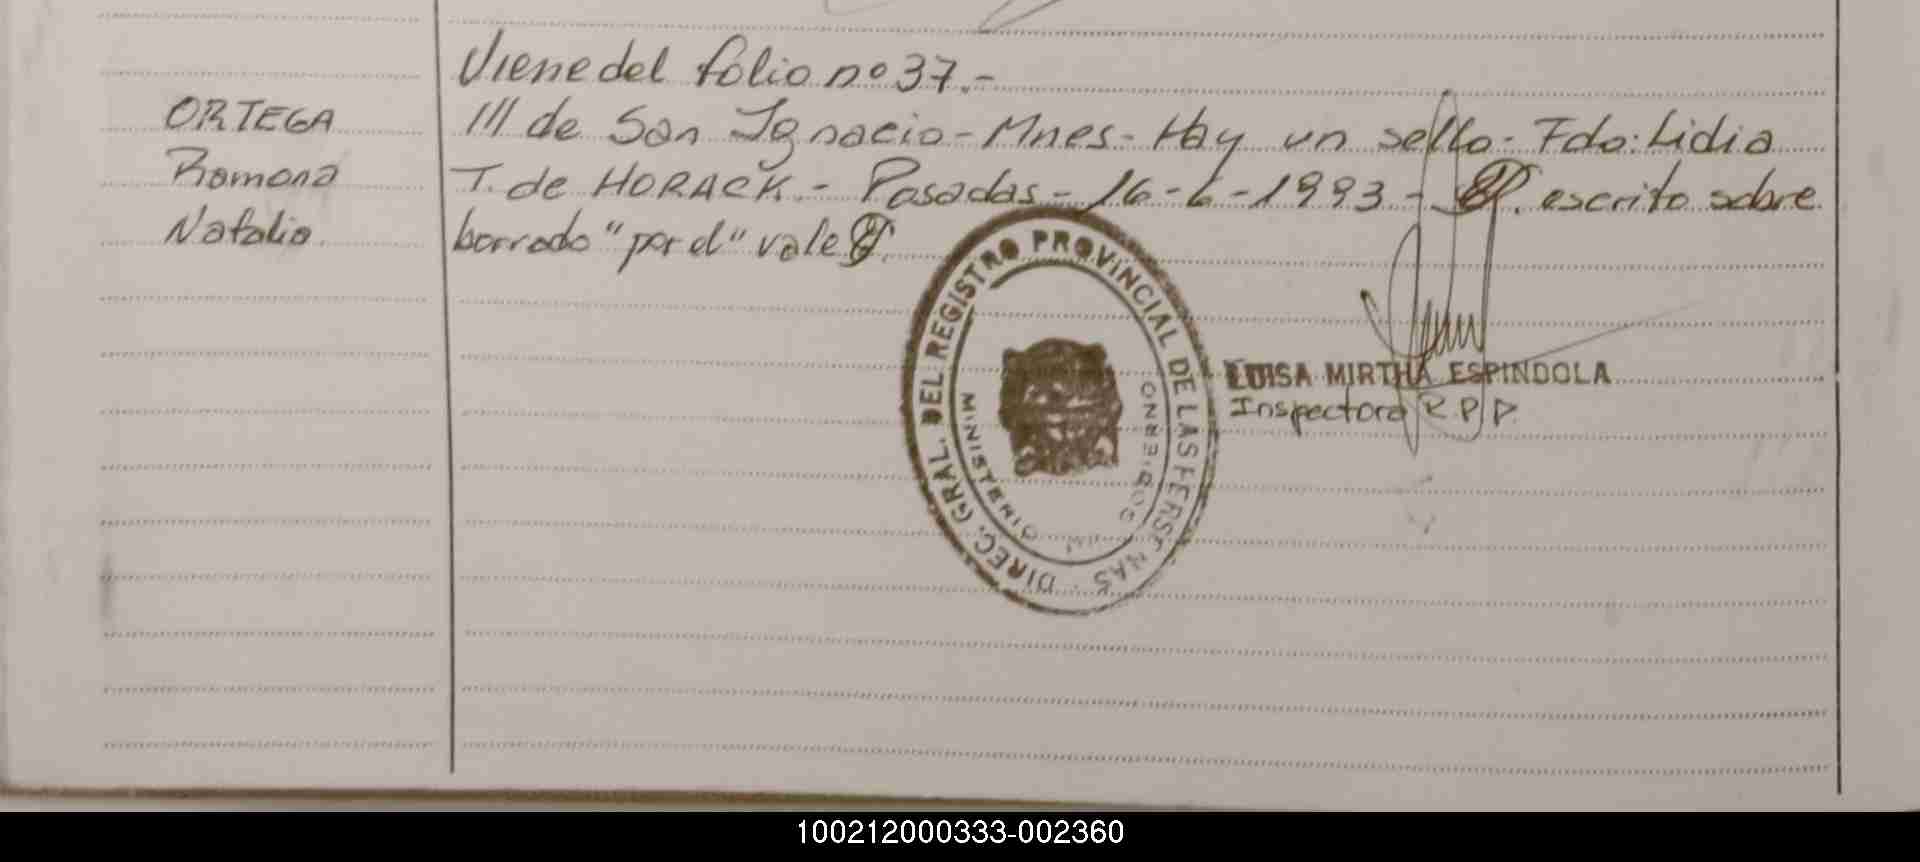 Viene del folio nº 37.-
ORTEGA
Ramona
Natalia.
/// de San Ignacio - Mnes - Hay un sello - Fdo: Lidia
T. de HORACK. - Posadas - 16-6-1993 - escrito sobre
borrado "por el" vale
DIREC. GRAL. DEL REGISTRO PROVINCIAL DE LAS PERSONAS
MINISTERIO
GOBIERNO
LUISA MIRTHA ESPINDOLA
Inspectora R.P.P.
100212000333-002360